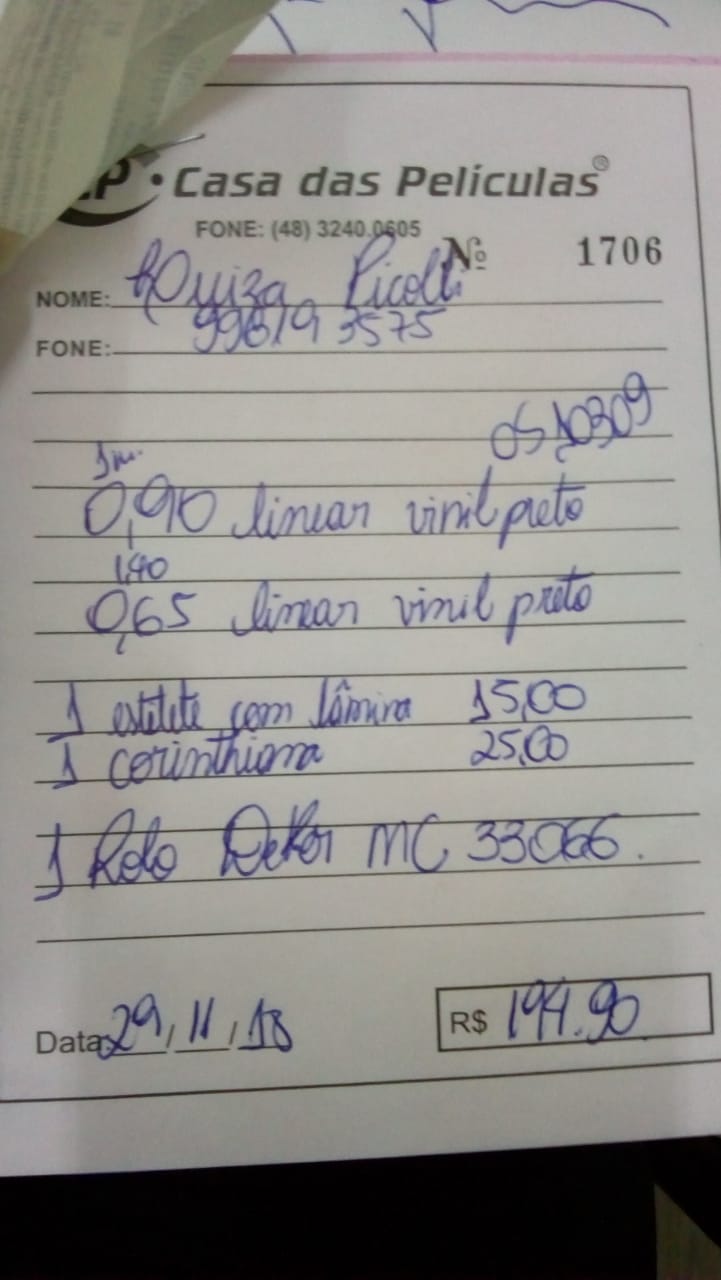 P • Casa das Películas®
FONE: (48) 3240.0605
Nº 1706
NOME: Luiza Picolli
FONE: 99619 3575
OS 10309
1m.
0,90 linear vinil preto
1,40
0,65 linear vinil preto
1 estilete com lâmina 15,00
1 corinthiana 25,00
1 Rolo Dekor MC 33066.
Data: 29/11/18
R$ 194.90